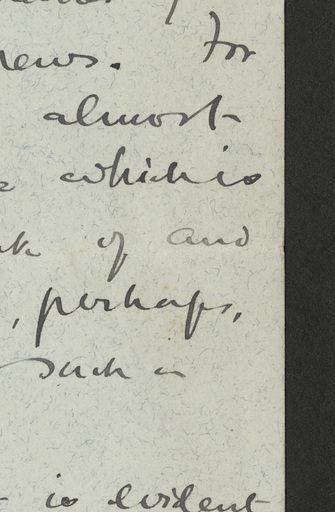 news. For
almost
which is
of and
, perhaps,
such a
is evident